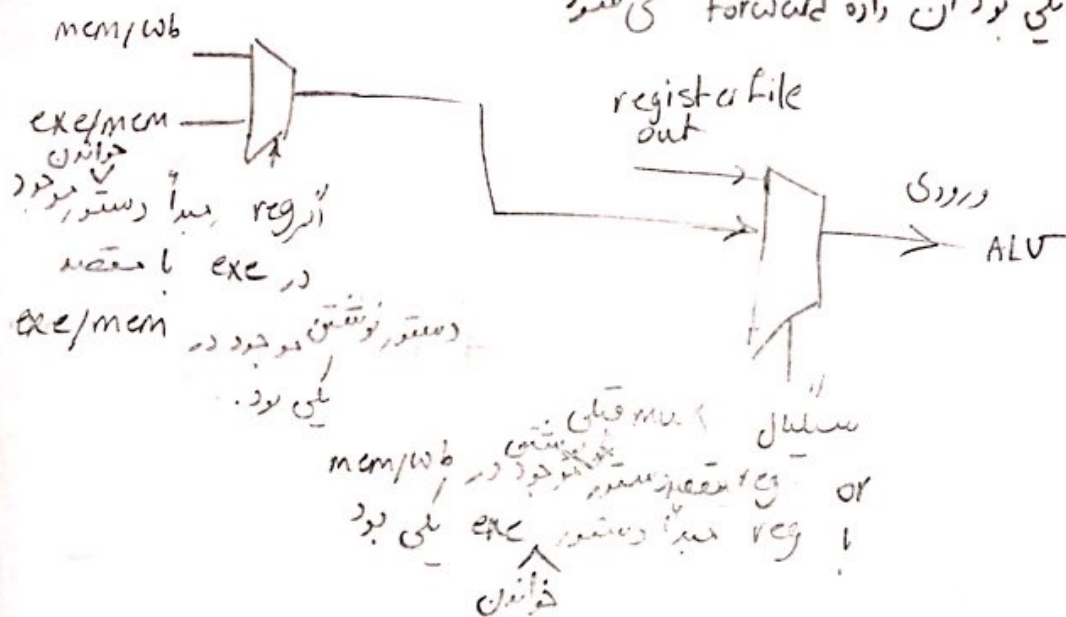 یکی بود آن داده forward می شود
mem/wb
exe/mem
register file
out
ورودی
ALU
خواندن
اگر reg مبدأ دستور موجود
در exe با مقصد
دستور نوشتن موجود در exe/mem
یکی بود.
سیگنال mux قبلی
or reg مقصد دستور نوشتن موجود در mem/wb
با reg مبدأ دستور exe یکی بود
خواندن